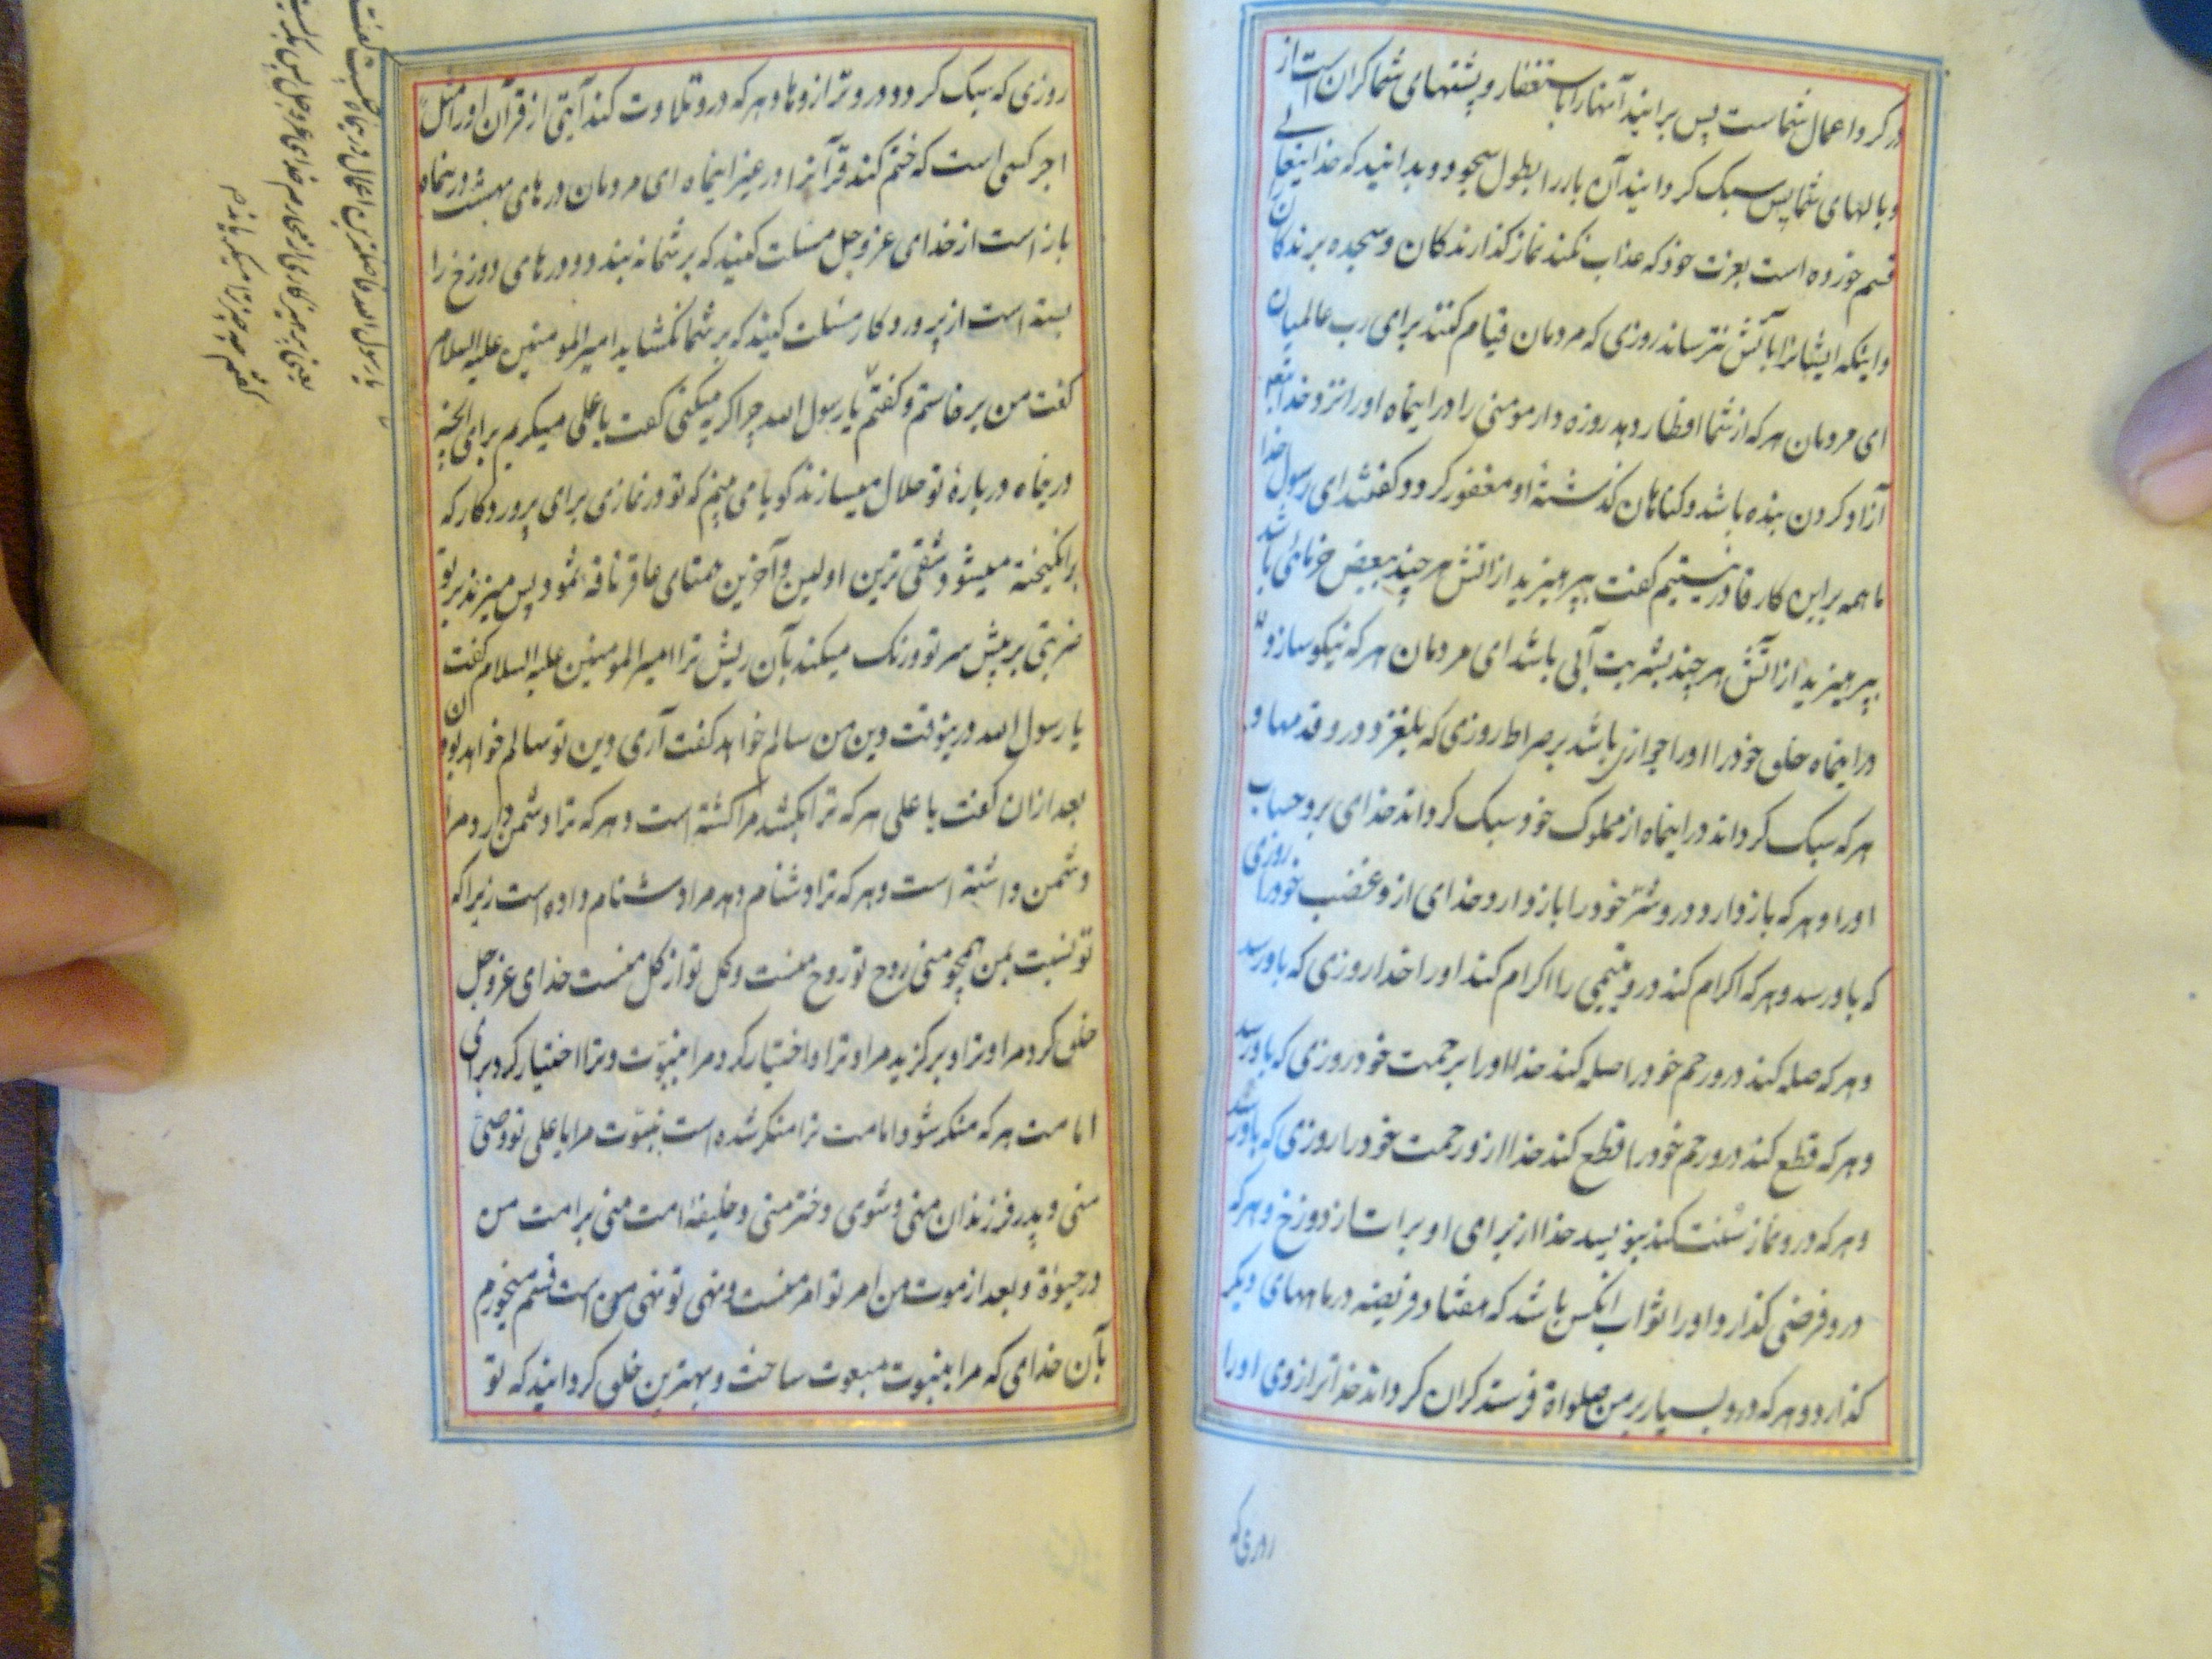 در کرو اعمال شماست پس برانید آنها را باستغفار و پشتهای شما کران است از
وبالهای شما پس سبک کردانید آن بار را بطول سجود و بدانید که خدایتعالی
قسم خورده است بعزت خود که عذاب نکند نماز کذارندکان و سجده برندکان
و اینکه ایشانرا بآتش نترساند روزی که مردمان قیام کنند برای رب عالمیان
ای مردمان هر که از شما افطار دهد روزه دار مومنی را در اینماه او را نزد خدا
آزاد کردن بنده باشد و کناهان کذشته او مغفور کردد کفتند ای رسول خدا
ما همه بر این کار قادر نیستیم کفت بپرهیزید از آتش هر چند ببعض خرمائی باشد
بپرهیزید از آتش هر چند بشربت آبی باشد ای مردمان هر که نیکو سازد
در اینماه خلق خود را او را جوازی باشد بر صراط روزی که بلغزد درو قدمها و
هر که سبک کرداند در اینماه از مملوک خود سبک کرداند خدای برو حساب
او را و هر که باز دارد درو شرّ خود را باز دارد خدای ازو غضب خود را روزی
که باو رسد و هر که اکرام کند درو یتیمی را اکرام کند او را خدا روزی که باو رسد
و هر که صله کند درو رحم خود را صله کند خدا او را برحمت خود روزی که باو رسد
و هر که قطع کند درو رحم خود را قطع کند خدا ازو رحمت خود را روزی که باو رسد
و هر که درو نماز سنت کند بنویسد خدا از برای او برات از دوزخ و هر که
درو فرضی کذارد او را ثواب آنکس باشد که هفتاد فریضه در ماههای دیکر
کذارد و هر که درو بسیار بر من صلواة فرستد کران کرداند خدا ترازوی او را
روزی که
روزی که سبک کردد درو ترازوها و هر که درو تلاوت کند آیتی از قرآن او را مثل
اجر کسی است که ختم کند قرآنرا در غیر اینماه ای مردمان درهای بهشت درینماه
باز است از خدای عزوجل مسئلت کنید که بر شما نه بندد و درهای دوزخ را
بسته است از پروردکار مسئلت کنید که بر شما نکشاید امیرالمومنین علیه السلام
کفت من برخاستم و کفتم یا رسول الله چرا کریه میکنی کفت یا علی میکریم برای آنچه
درینماه درباره تو حلال میسازند کویا می بینم که تو در نمازی برای پروردکار که
برانکیخته میشود شقی ترین اولین و آخرین همتای عاقر ناقه ثمود پس میزند بر تو
ضربتی بر پیش سر تو و رنک میکند بآن ریش ترا امیرالمومنین علیه السلام کفت
یا رسول الله درینوقت دین من سالم خواهد کفت آری دین تو سالم خواهد بود
بعد از ان کفت یا علی هر که ترا بکشد مرا کشته است و هر که ترا دشمن دارد مرا
دشمن داشته است و هر که ترا دشنام دهد مرا دشنام داده است زیرا که
تو نسبت بمن همچو منی روح تو روح منست و کل تو از کل منست خدای عزوجل
خلق کرد مرا و ترا و برکزید مرا و ترا و اختیار کرد مرا بنبوّت و ترا اختیار کرد برای
امامت هر که منکر شود امامت ترا منکر شده است بنبوّت مرا یا علی تو وصیّ
منی و پدر فرزندان منی و شوی دختر منی و خلیفهٔ امت منی بر امت من
در حیوة و بعد از موت من امر تو امر منست و نهی تو نهی من است قسم میخورم
بآن خدای که مرا بنبوت مبعوث ساخت و بهترین خلق کردانید که تو